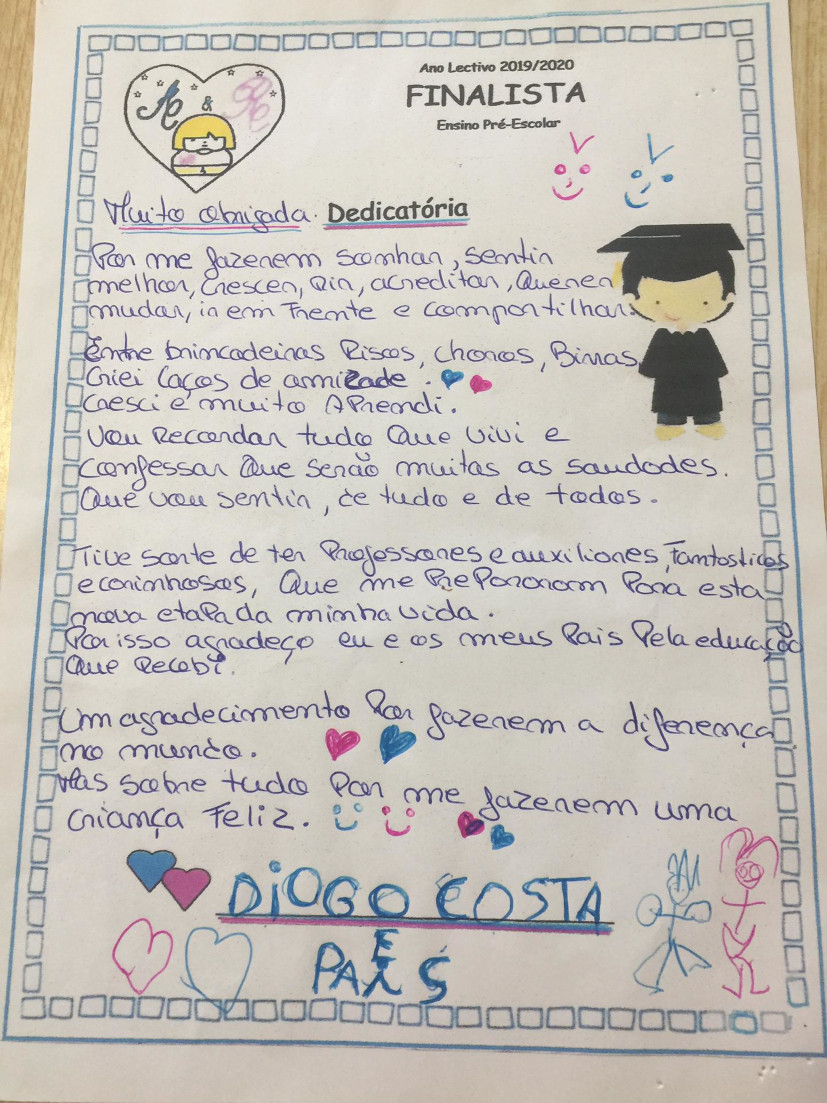 Ano Lectivo 2019/2020
FINALISTA
Ensino Pré-Escolar
&
Muito obrigada. Dedicatória
Por me fazerem sonhar, sentir
melhor, Crescer, Rir, acreditar, Querer
mudar, ir em Frente e compartilhar.
Entre brincadeiras Riscos, choros, Birras
Criei Laços de amizade.
Cresci e muito APrendi.
Vou Recordar tudo Que vivi e
confessar Que serão muitas as saudades.
Que vou sentir, de tudo e de todos.
Tive sorte de ter Professores e auxiliares, Fantasticos
e carinhosos, Que me PrePararam Para esta
nova etaPa da minha vida.
Por isso agradeço eu e os meus Pais Pela educação
Que Recebi.
Um agradecimento Por fazerem a diferença
no mundo.
Mas sobre tudo Por me fazerem uma
criança Feliz.
DiOGO COSTA
E
PAIS